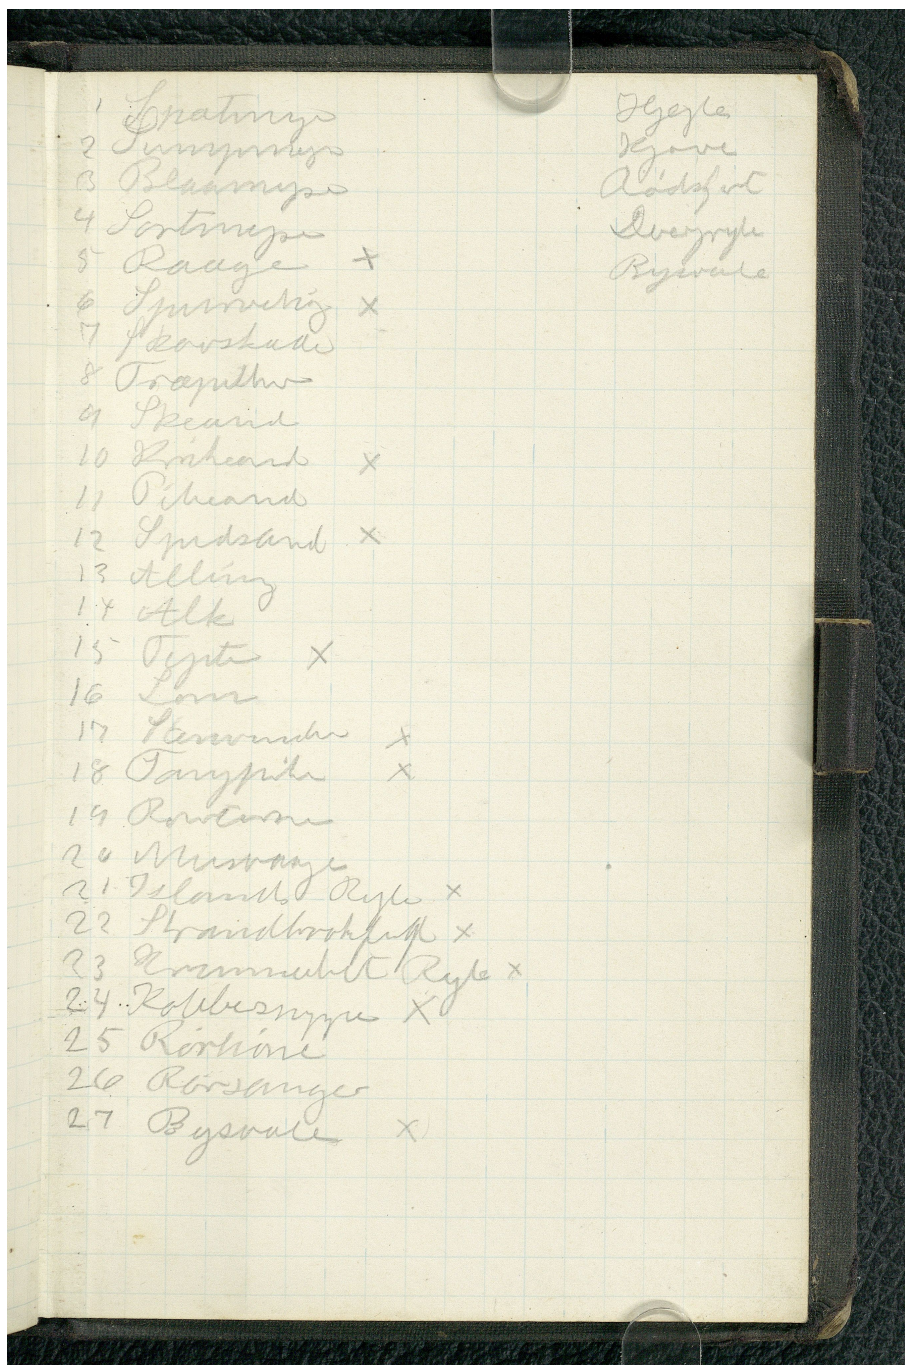 1 Spætmejse
2 Sumpmejse
3 Blaamejse
4 Sortmejse
5 Raage x
6 Spurvehøg x
7 Skovskade
8 Træpiber
9 Skeand
10 Krikand x
11 Pibeand
12 Spidsand x
13 Alling
14 Alk
15 Tejste x
16 Lom
17 Stenvender x
18 Tangpiber x
19 Rovterne
20 Musvaage
21 Islandsk Ryle x
22 Strandbrokfugl x
23 Krumnæbet Ryle x
24 Kobbersneppe x
25 Rørhøne
26 Rørsanger
27 Bysvale x
Hjejle
Kjove
Dværgryle
Bysvale